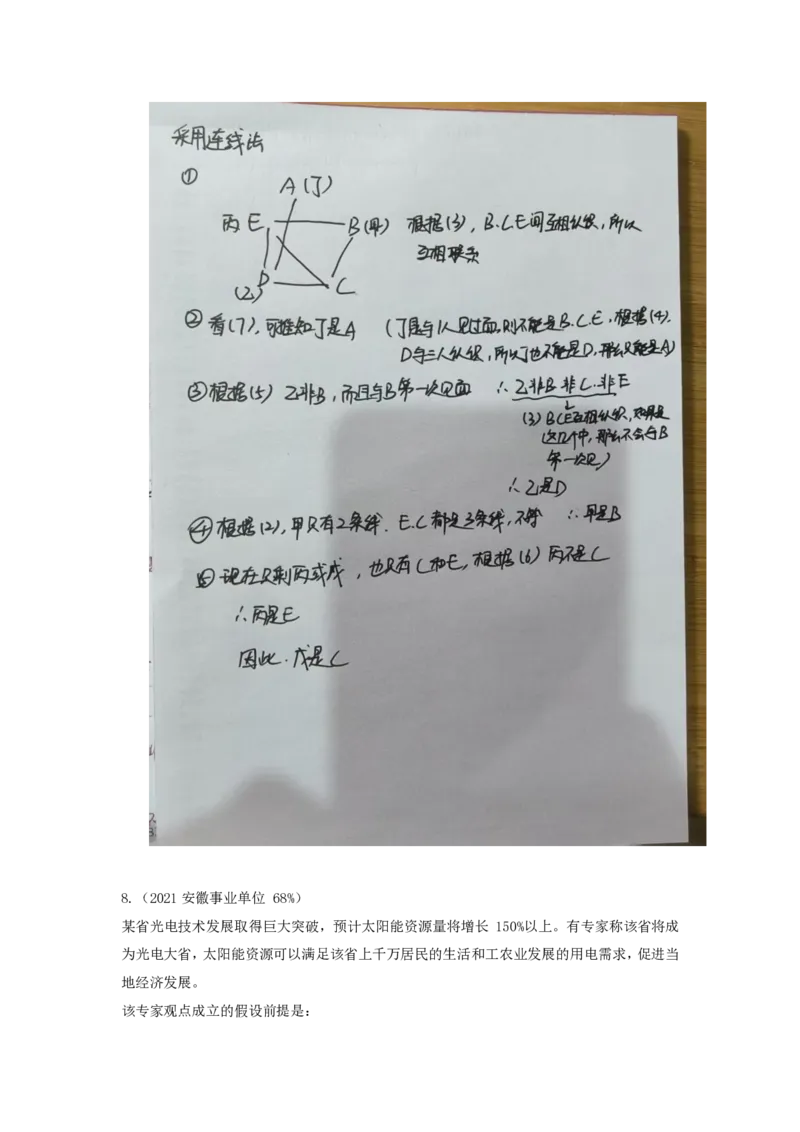 采用连线法
①
A(丁)
丙 E
B(甲)
根据(3), B.C.E间互相认识, 所以
互相联系
D
(乙)
C
② 看(7), 可推知丁是A (丁只与1人见过面, 则不能是B.C.E, 根据(4),
D与三人认识, 所以丁也不能是D, 那么只能是A)
③ 根据(5) 乙非B, 而且与B第一次见面 ∴ 乙非B 非C. 非E
(3) BCE互相认识, 如果是
这几个中, 那么不会与B
第一次见)
∴ 乙是D
④ 根据(2), 甲只有2条线. E.C都是3条线, 不符 ∴ 甲是B
现在只剩丙或戊, 也只有C和E, 根据(6) 丙不是C
∴ 丙是E
因此. 戊是C
8.（2021 安徽事业单位 68%）
某省光电技术发展取得巨大突破，预计太阳能资源量将增长 150%以上。有专家称该省将成
为光电大省，太阳能资源可以满足该省上千万居民的生活和工农业发展的用电需求，促进当
地经济发展。
该专家观点成立的假设前提是：